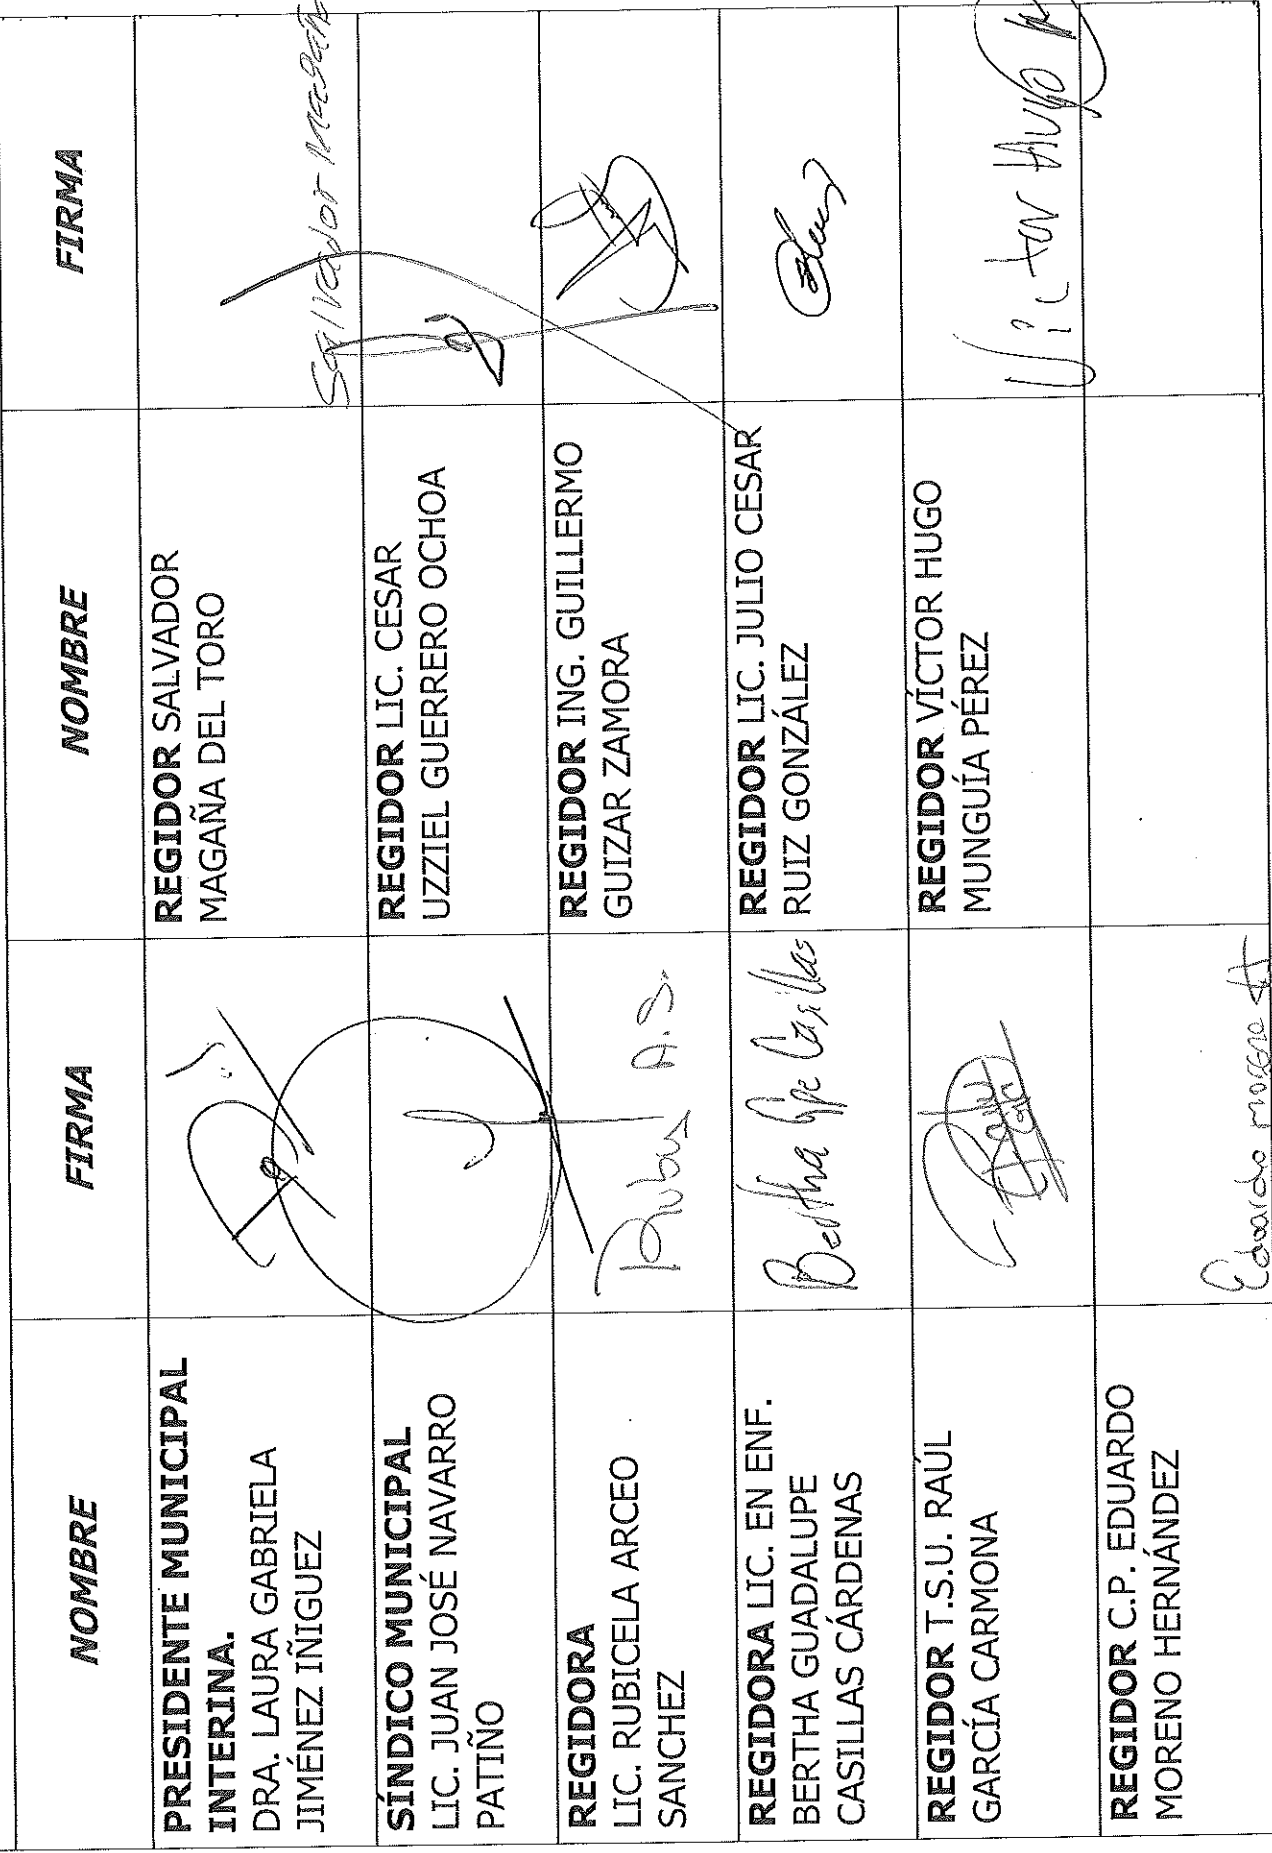 NOMBRE
FIRMA
NOMBRE
FIRMA
PRESIDENTE MUNICIPAL
INTERINA.
DRA. LAURA GABRIELA
JIMÉNEZ IÑIGUEZ
REGIDOR SALVADOR
MAGAÑA DEL TORO
Salvador Magaña
SÍNDICO MUNICIPAL
LIC. JUAN JOSÉ NAVARRO
PATIÑO
REGIDOR LIC. CESAR
UZZIEL GUERRERO OCHOA
REGIDORA
LIC. RUBICELA ARCEO
SANCHEZ
Rubus A.S.
REGIDOR ING. GUILLERMO
GUIZAR ZAMORA
REGIDORA LIC. EN ENF.
BERTHA GUADALUPE
CASILLAS CÁRDENAS
Bertha Gpe Casillas
REGIDOR LIC. JULIO CESAR
RUIZ GONZÁLEZ
REGIDOR T.S.U. RAÚL
GARCÍA CARMONA
REGIDOR VÍCTOR HUGO
MUNGUÍA PÉREZ
Victor Hugo
REGIDOR C.P. EDUARDO
MORENO HERNÁNDEZ
Eduardo moreno H